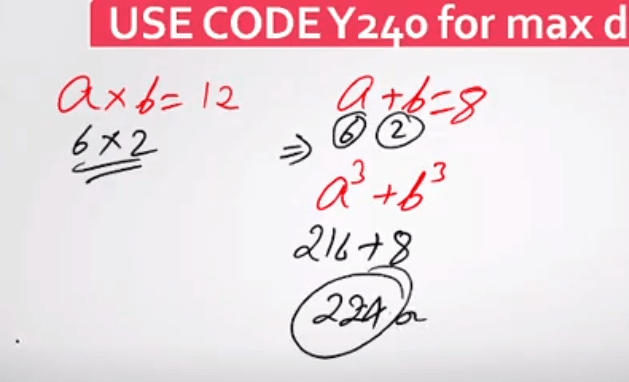 USE CODE Y240 for max d
a×b=12
6×2
a+b=8
⇒ 6 2
a³+b³
216+8
224